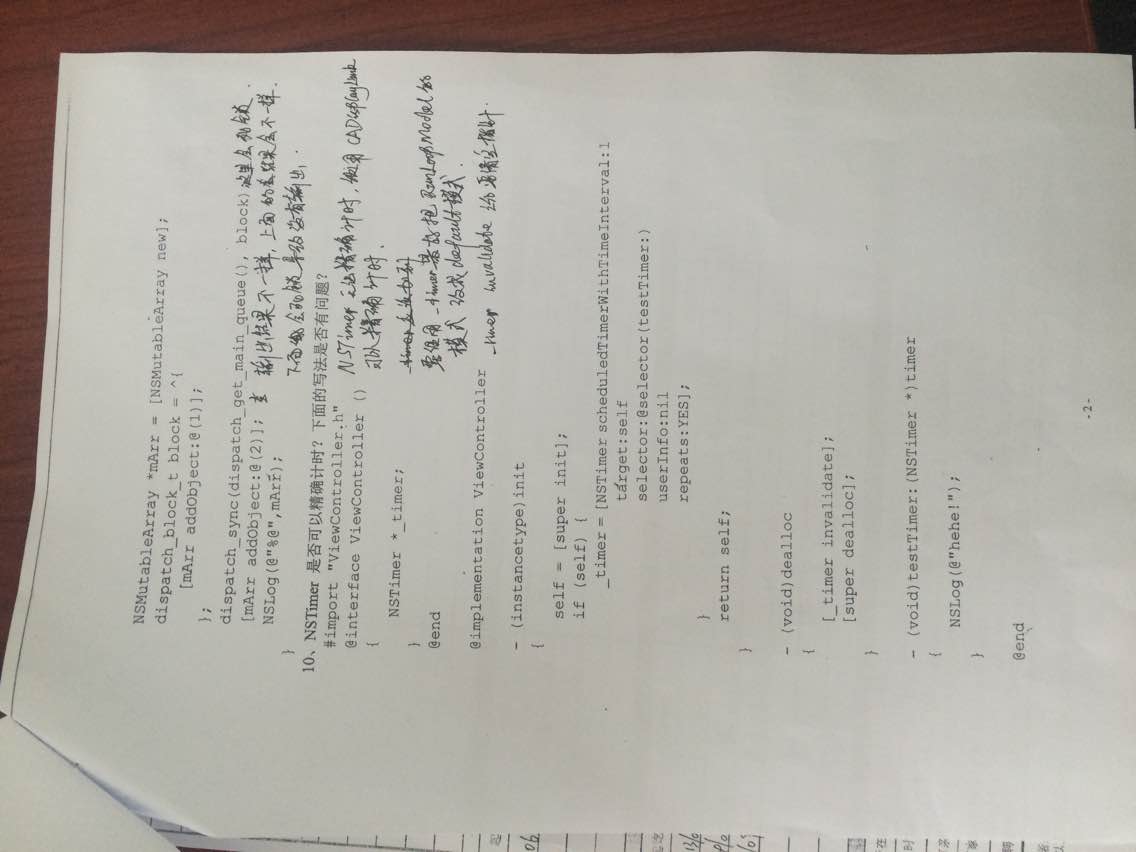 NSMutableArray *mArr = [NSMutableArray new];
dispatch_block_t block = ^{
[mArr addObject:@(1)];
};
dispatch_sync(dispatch_get_main_queue(), block) 这里会死锁.
[mArr addObject:@(2)]; 输出结果不一样, 上面的结果会不一样.
NSLog(@"%@",mArr);
下面会死锁导致没有输出.
}
10、NSTimer 是否可以精确计时？下面的写法是否有问题？
#import "ViewController.h"
NSTimer 无法精确计时, 使用 CADisplayLink
@interface ViewController ()
可以精确计时.
{
NSTimer *_timer;
}
要使用 _timer 最好把 RunLoopModel的
@end
模式 改成 default 模式.
@implementation ViewController
_timer invalidate 后要清空指针.
- (instancetype)init
{
self = [super init];
if (self) {
_timer = [NSTimer scheduledTimerWithTimeInterval:1
target:self
selector:@selector(testTimer:)
userInfo:nil
repeats:YES];
}
return self;
}
- (void)dealloc
{
[_timer invalidate];
[super dealloc];
}
- (void)testTimer:(NSTimer *)timer
{
NSLog(@"hehe!");
}
@end
-2-